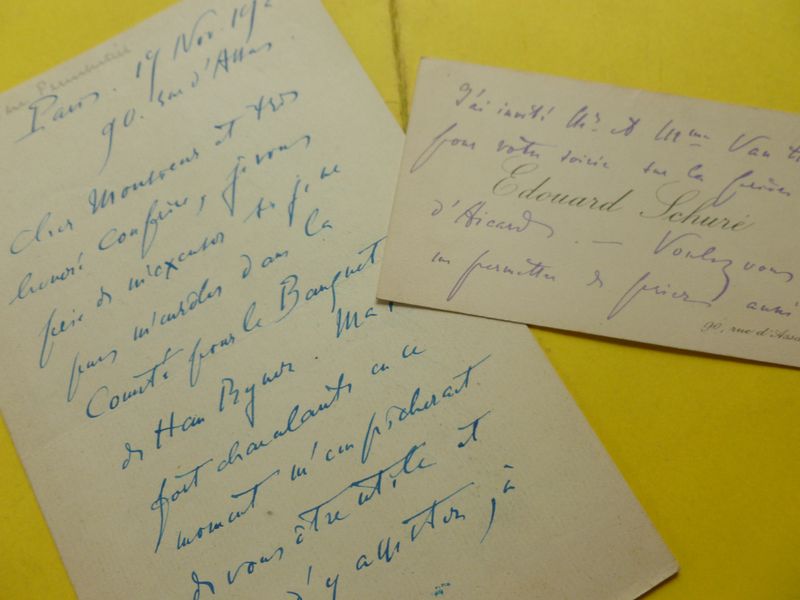 Paris. 19 Nov. 192
90. rue d'Assas.
Cher Monsieur et très
honoré confrère, je vous
prie de m'excuser si je ne
puis m'enrôler dans la
Comité pour le Banquet
de Han Ryner. Ma
fort chancelante en ce
moment m'empêcherait
de vous être utile et
d'y assister, à
J'ai invité Mr et Mme Van
pour votre soirée sur la
Edouard Schuré
d'Aicard. — Voulez vous
me permettre de prier aussi
90, rue d'Assa